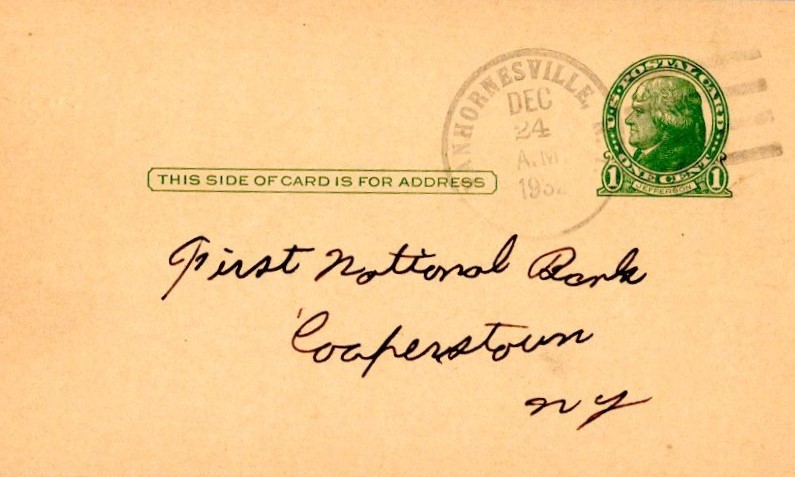 ANHORNESVILLE, N.
DEC
24
A.M
193
U.S. POSTAL CARD
ONE CENT
1 JEFFERSON 1
THIS SIDE OF CARD IS FOR ADDRESS
First National Bank
Cooperstown
NY